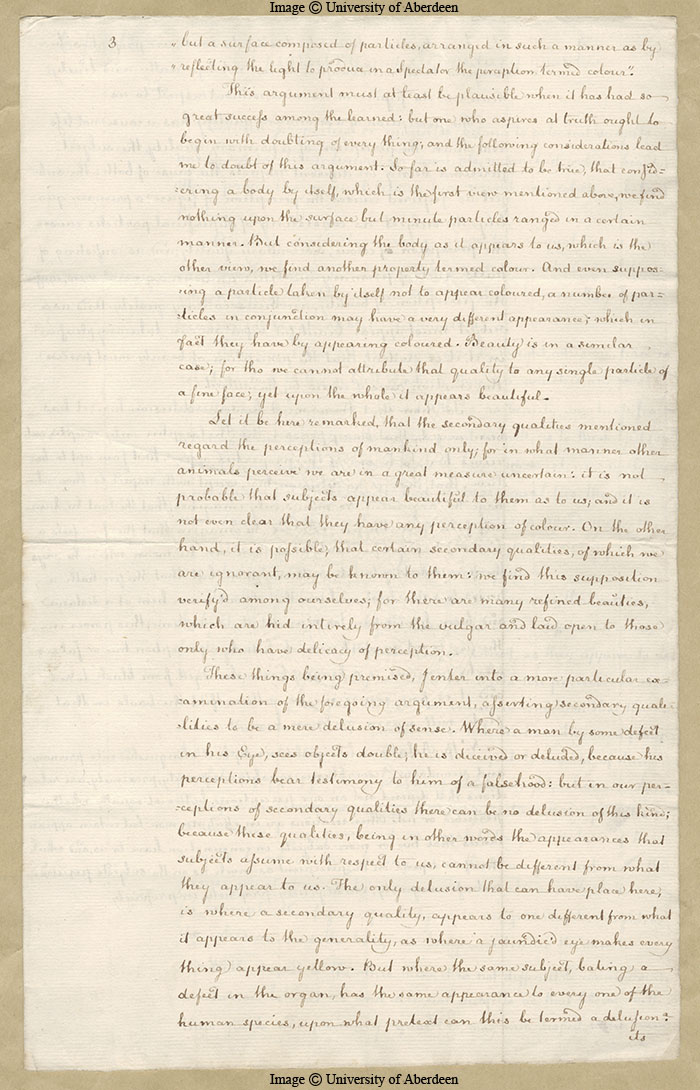 Image © University of Aberdeen
3
" but a surface composed of particles, arranged in such a manner as by
" reflecting the light to produce in a Spectator the perception termed colour".
This argument must at least be plausible when it has had so
great success among the learned: but one who aspires at truth ought to
begin with doubting of every thing; and the following considerations lead
me to doubt of this argument. So far is admitted to be true, that consid=
=ering a body by itself, which is the first view mentioned above, we find
nothing upon the surface but minute particles ranged in a certain
manner. But considering the body as it appears to us, which is the
other view, we find another property termed colour. And even suppos=
=ing a particle taken by itself not to appear coloured, a number of par=
=ticles in conjunction may have a very different appearance; which in
fact they have by appearing coloured. Beauty is in a similar
case; for tho we cannot attribute that quality to any single particle of
a fine face; yet upon the whole it appears beautiful.
Let it be here remarked, that the secondary qualities mentioned
regard the perceptions of mankind only; for in what manner other
animals perceive we are in a great measure uncertain: it is not
probable that subjects appear beautiful to them as to us; and it is
not even clear that they have any perception of colour. On the other
hand, it is possible, that certain secondary qualities, of which we
are ignorant, may be known to them: we find this supposition
verify'd among ourselves; for there are many refined beauties,
which are hid intirely from the vulgar and laid open to those
only who have delicacy of perception.
These things being premised, I enter into a more particular ex=
=amination of the foregoing argument, asserting secondary quali=
=lities to be a mere delusion of sense. Where a man by some defect
in his Eye, sees objects double, he is deceived or deluded, because his
perceptions bear testimony to him of a falsehood: but in our per=
=ceptions of secondary qualities there can be no delusion of this kind;
because these qualities, being in other words the appearances that
subjects assume with respect to us, cannot be different from what
they appear to us. The only delusion that can have place here,
is where a secondary quality, appears to one different from what
it appears to the generality, as where a jaundic'd eye makes every
thing appear yellow. But where the same subject, bating a
defect in the organ, has the same appearance to every one of the
human species, upon what pretext can this be termed a delusion?
its
Image © University of Aberdeen